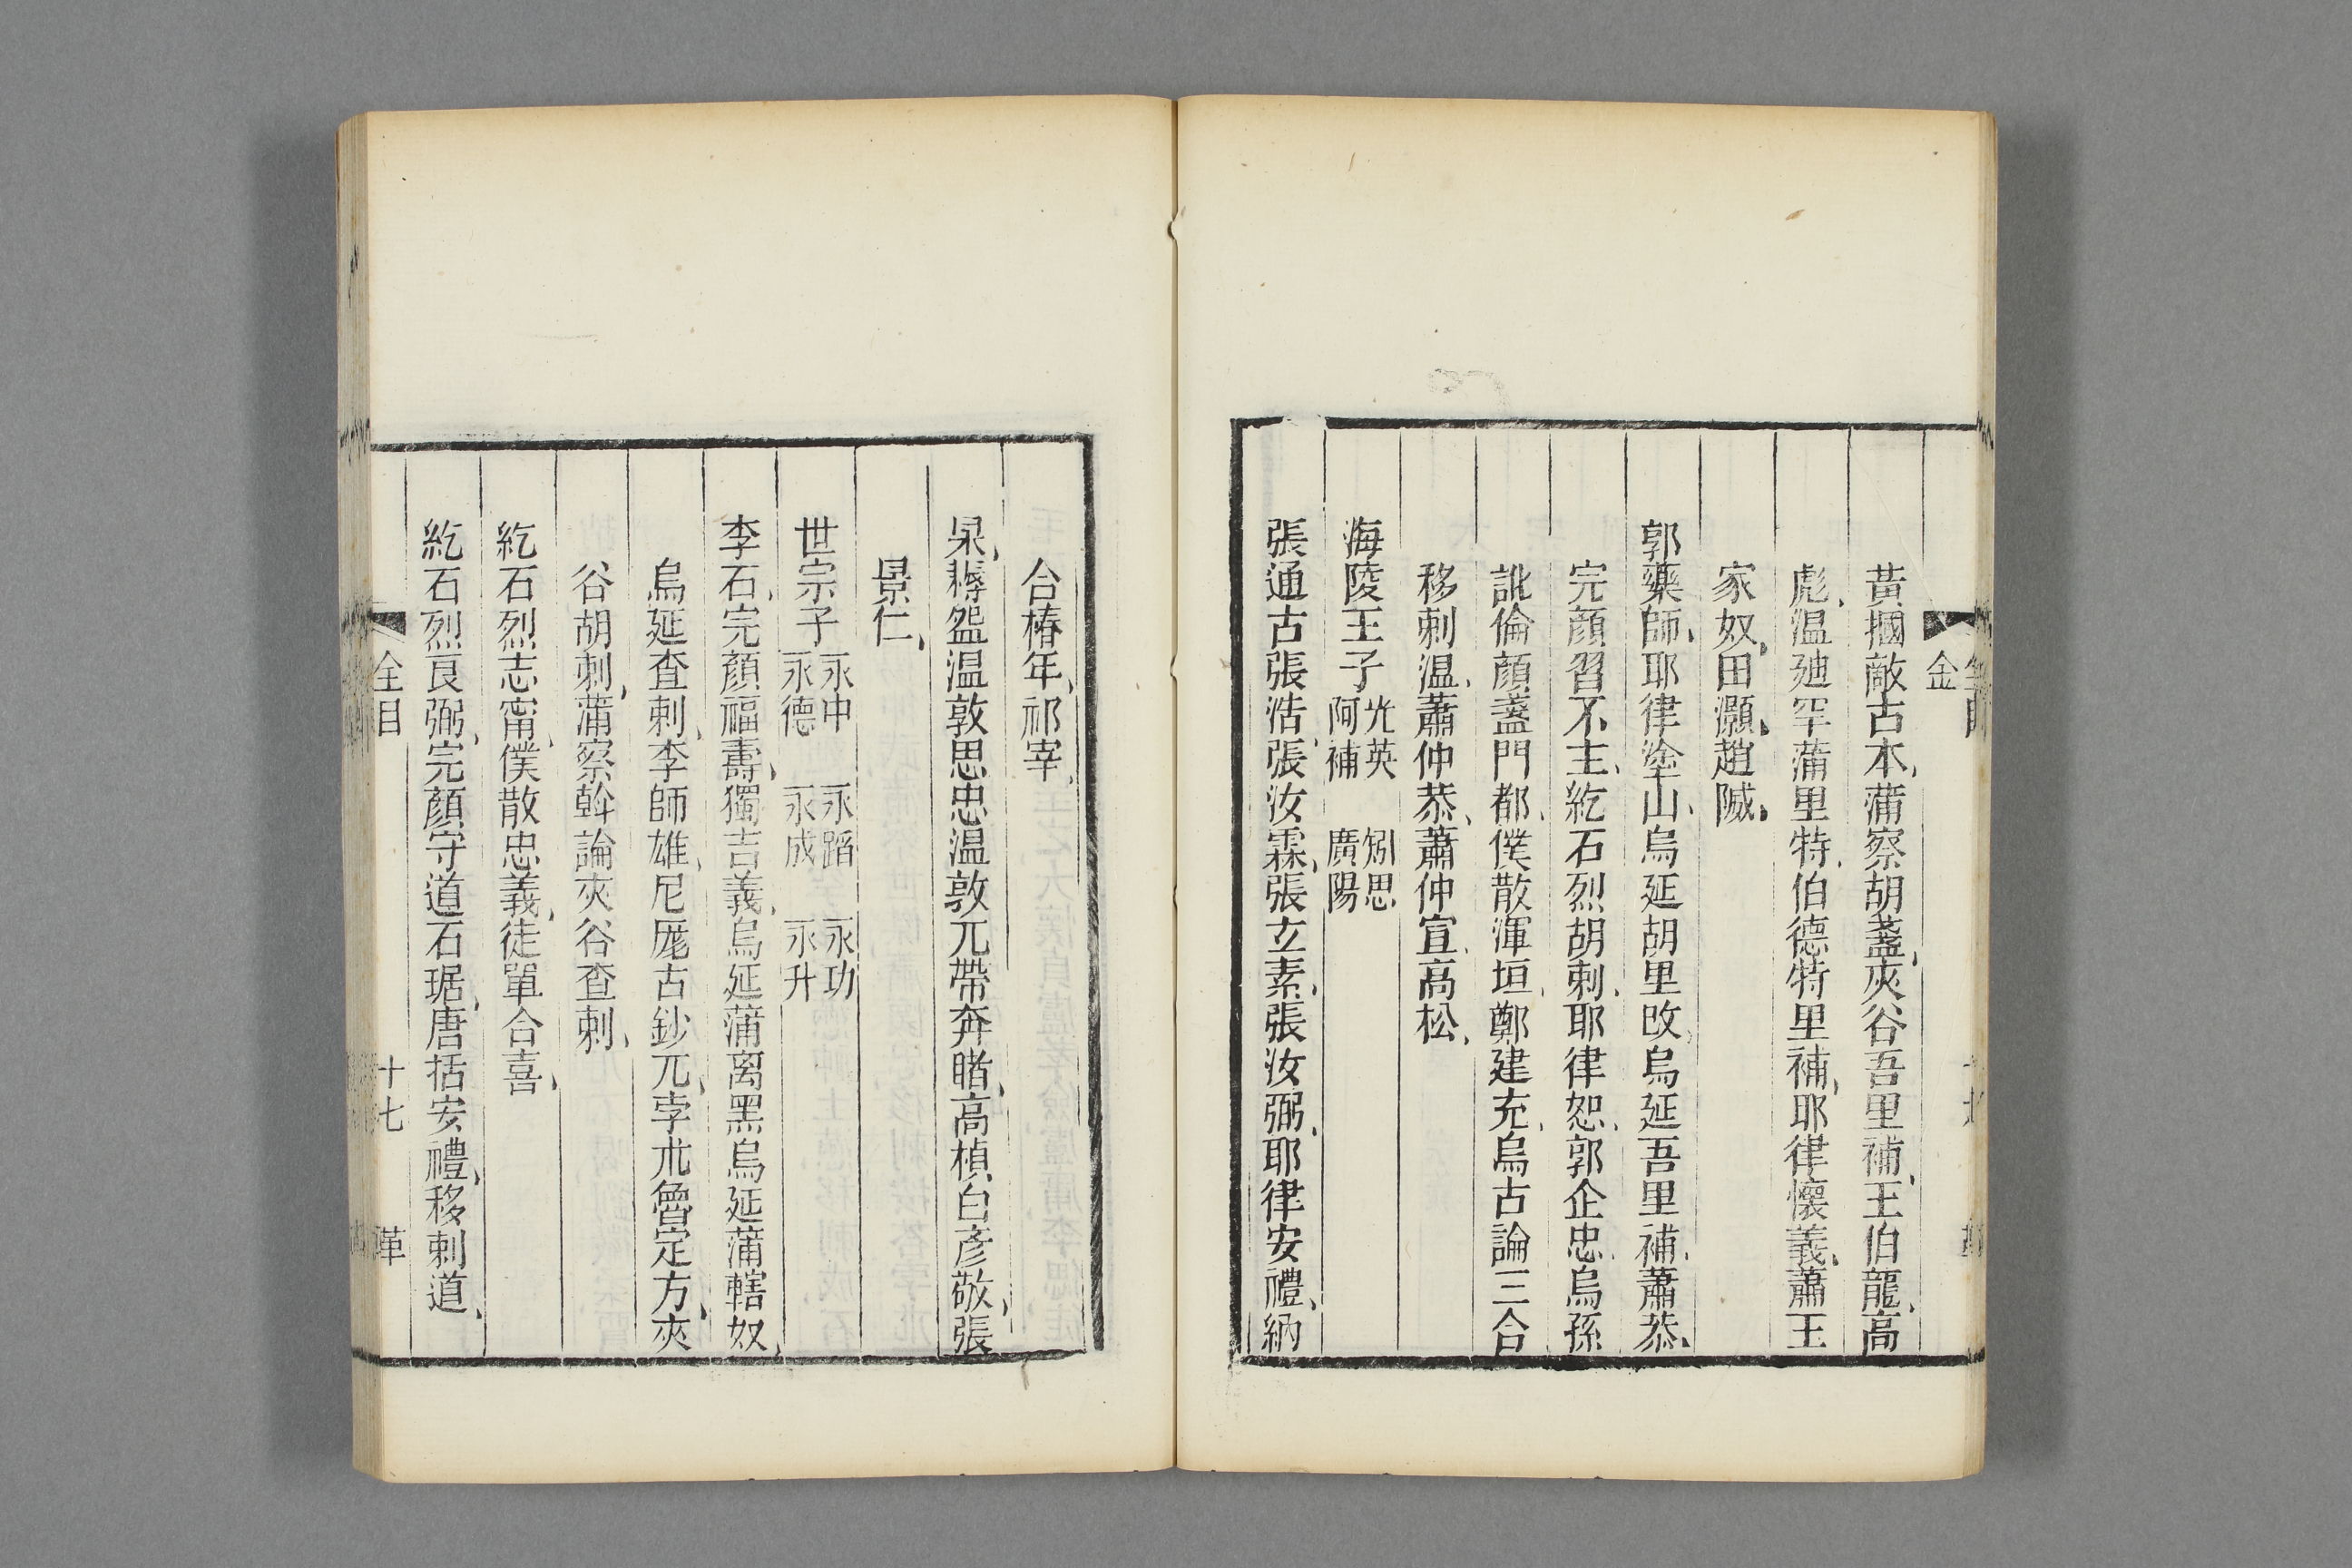 金
黃摑敵古本、蒲察胡盞、夾谷吾里補、王伯龍、高
彪、温廸罕蒲里特、伯德特里補、耶律懷義、蕭王
家奴、田灝、趙隇、
郭藥師、耶律塗山、烏延胡里改、烏延吾里補、蕭恭、
完顏習不主、紇石烈胡剌、耶律恕、郭企忠、烏孫
訛倫顏盞門都、僕散渾垣、鄭建充、烏古論三合
移剌温、蕭仲恭、蕭仲宣、高松、
海陵王子 光英 阿補 矧思 廣陽
張通古張浩、張汝霖、張玄素、張汝弼、耶律安禮、納
合椿年、祁宰、
杲、耨盌温敦思忠温敦兀帶奔睹、高楨白彥敬、張
景仁、
世宗子 永中 永德 永蹈 永成 永功 永升
李石、完顏福壽、獨吉義、烏延蒲离黑烏延蒲轄奴、
烏延查剌、李師雄、尼厖古鈔兀、孛朮魯定方、夾
谷胡剌、蒲察斡論夾谷查剌、
紇石烈志甯、僕散忠義、徒單合喜、
紇石烈良弼、完顏守道石琚、唐括安禮、移剌道、
全目
十七